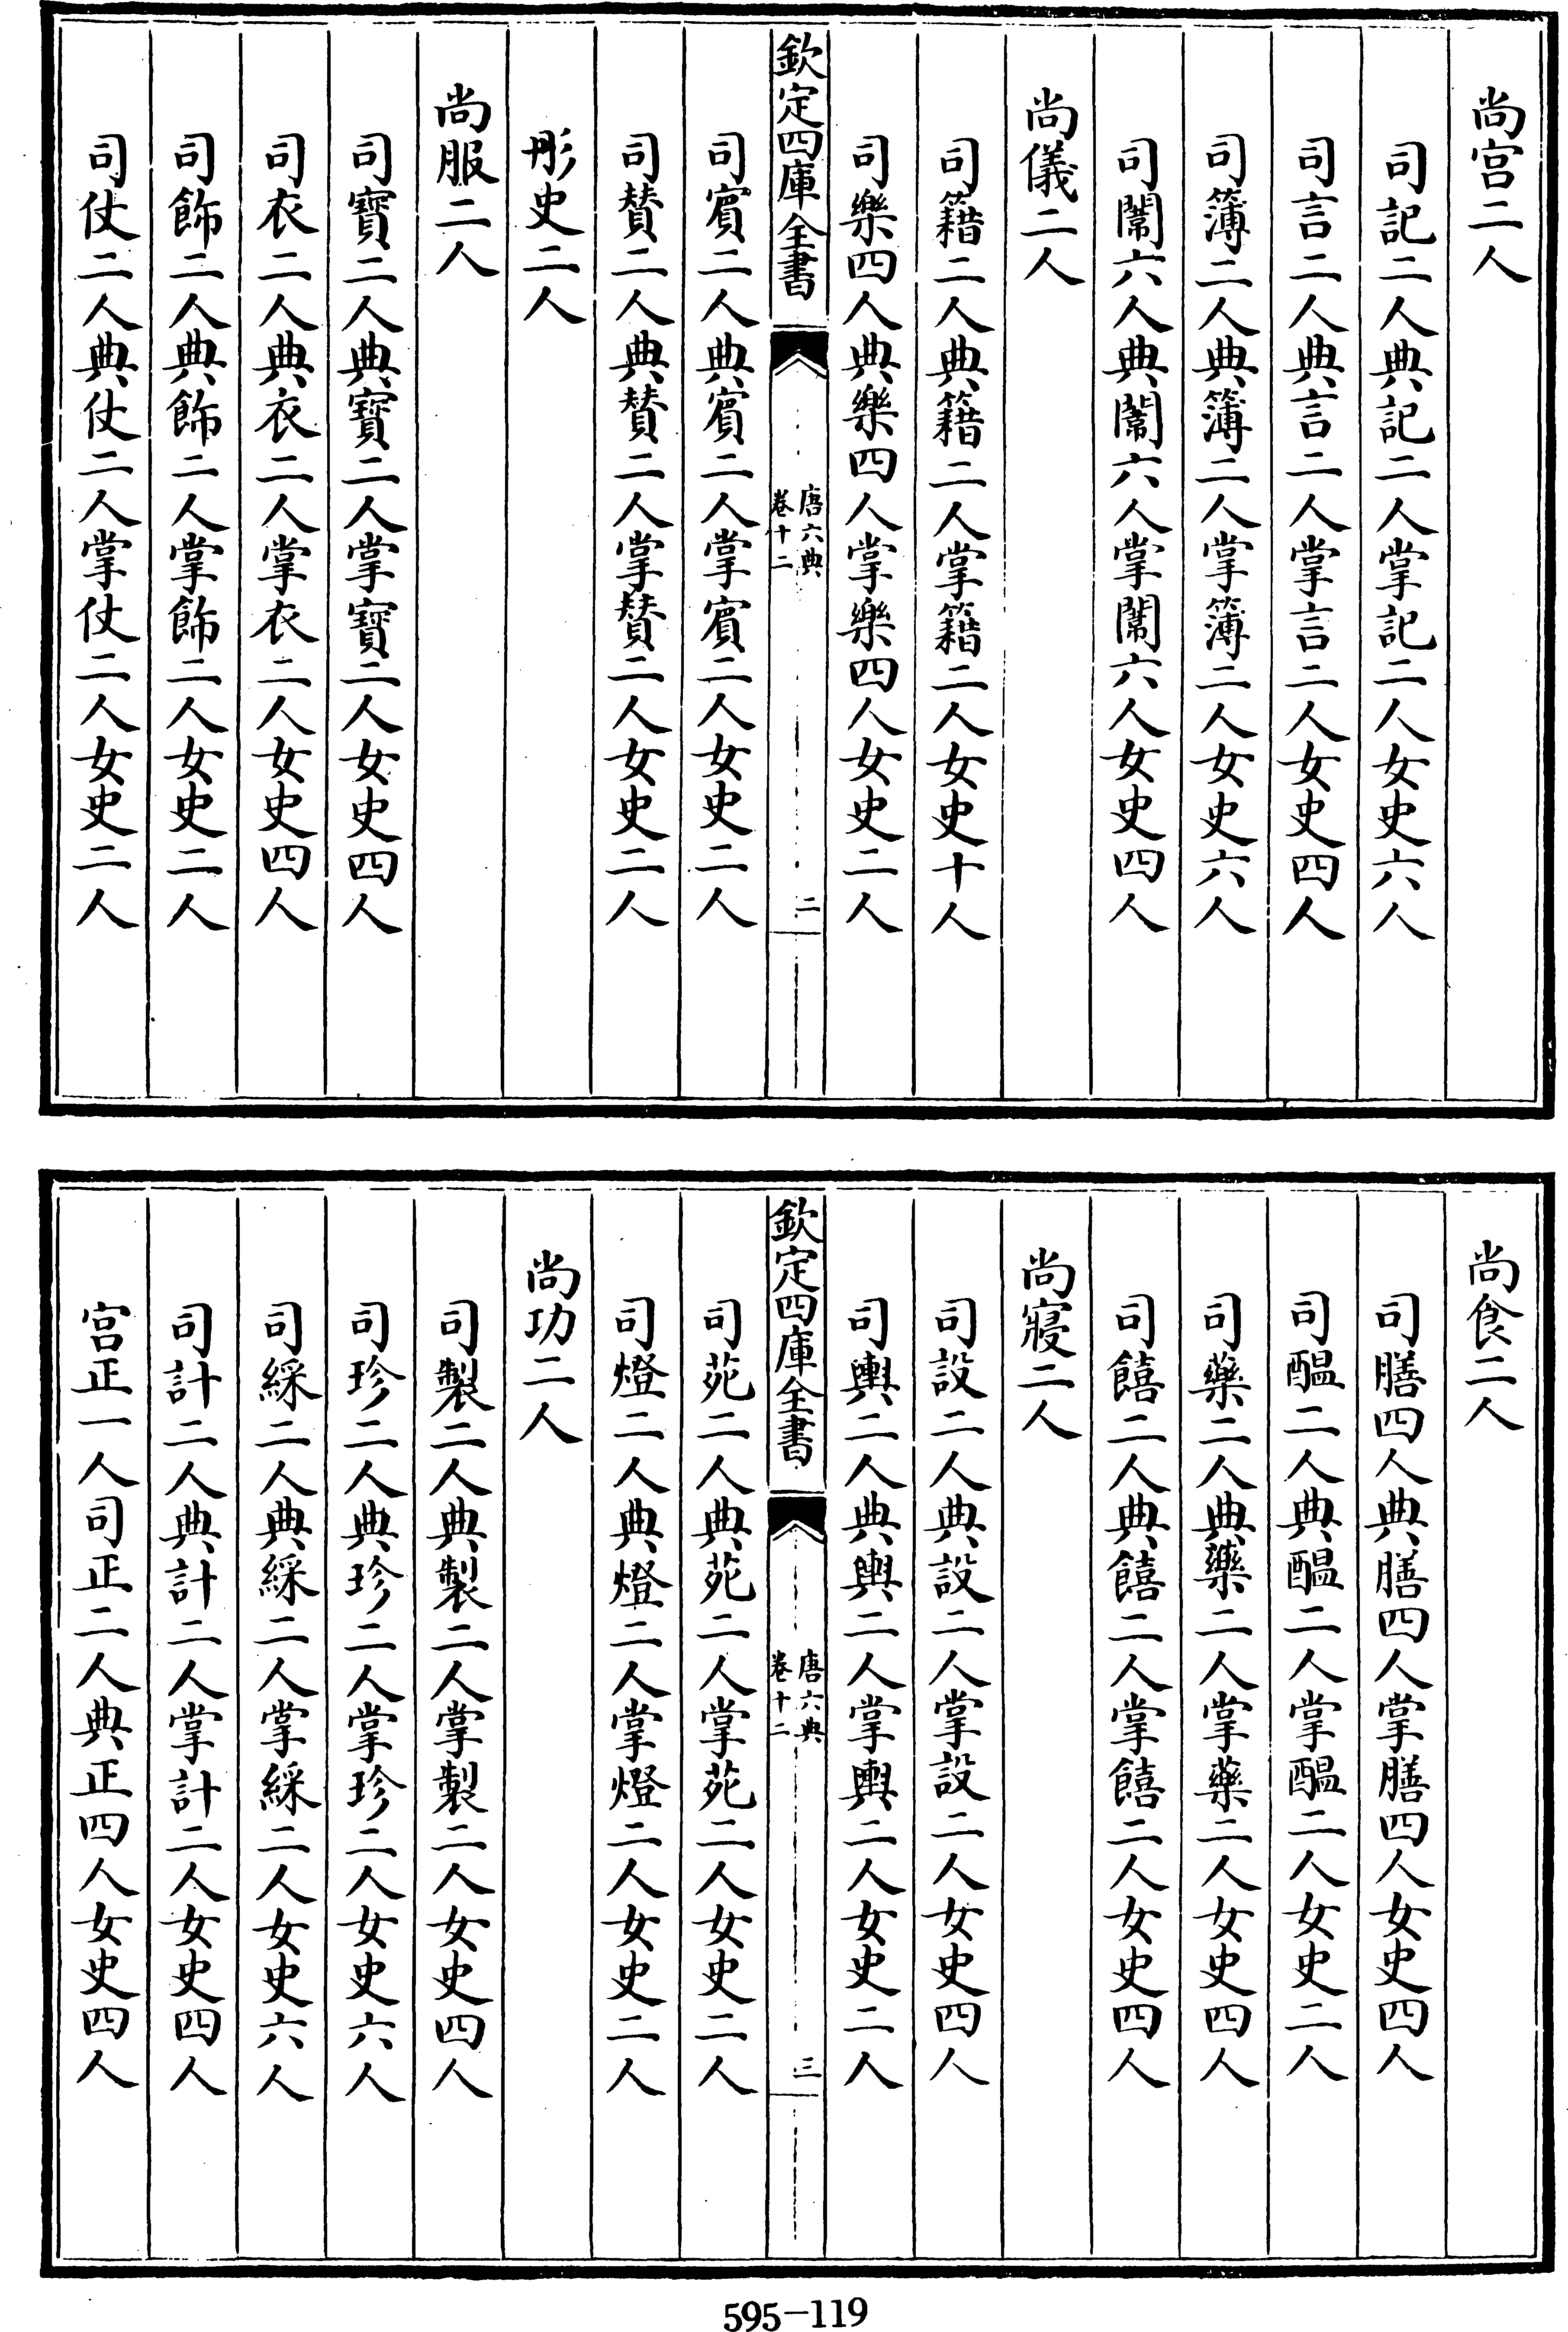 尚宫二人
司記二人典記二人掌記二人女史六人
司言二人典言二人掌言二人女史四人
司簿二人典簿二人掌簿二人女史六人
司闈六人典闈六人掌闈六人女史四人
尚儀二人
司籍二人典籍二人掌籍二人女史十人
司樂四人典樂四人掌樂四人女史二人
欽定四庫全書
唐六典
卷十二
二
司賓二人典賓二人掌賓二人女史二人
司贊二人典贊二人掌贊二人女史二人
彤史二人
尚服二人
司寶二人典寶二人掌寶二人女史四人
司衣二人典衣二人掌衣二人女史四人
司飾二人典飾二人掌飾二人女史二人
司仗二人典仗二人掌仗二人女史二人
尚食二人
司膳四人典膳四人掌膳四人女史四人
司醖二人典醖二人掌醖二人女史二人
司藥二人典藥二人掌藥二人女史四人
司饎二人典饎二人掌饎二人女史四人
尚寢二人
司設二人典設二人掌設二人女史四人
司輿二人典輿二人掌輿二人女史二人
欽定四庫全書
唐六典
卷十二
三
司苑二人典苑二人掌苑二人女史二人
司燈二人典燈二人掌燈二人女史二人
尚功二人
司製二人典製二人掌製二人女史四人
司珍二人典珍二人掌珍二人女史六人
司綵二人典綵二人掌綵二人女史六人
司計二人典計二人掌計二人女史四人
宫正一人司正二人典正四人女史四人
595-119